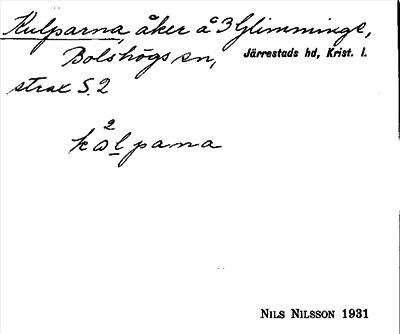 Kulparna, åker å 3 Glimminge,
Bolshögs sn, Järrestads hd, Krist. l.
strax S. 2
2
kolpana
NILS NILSSON 1931